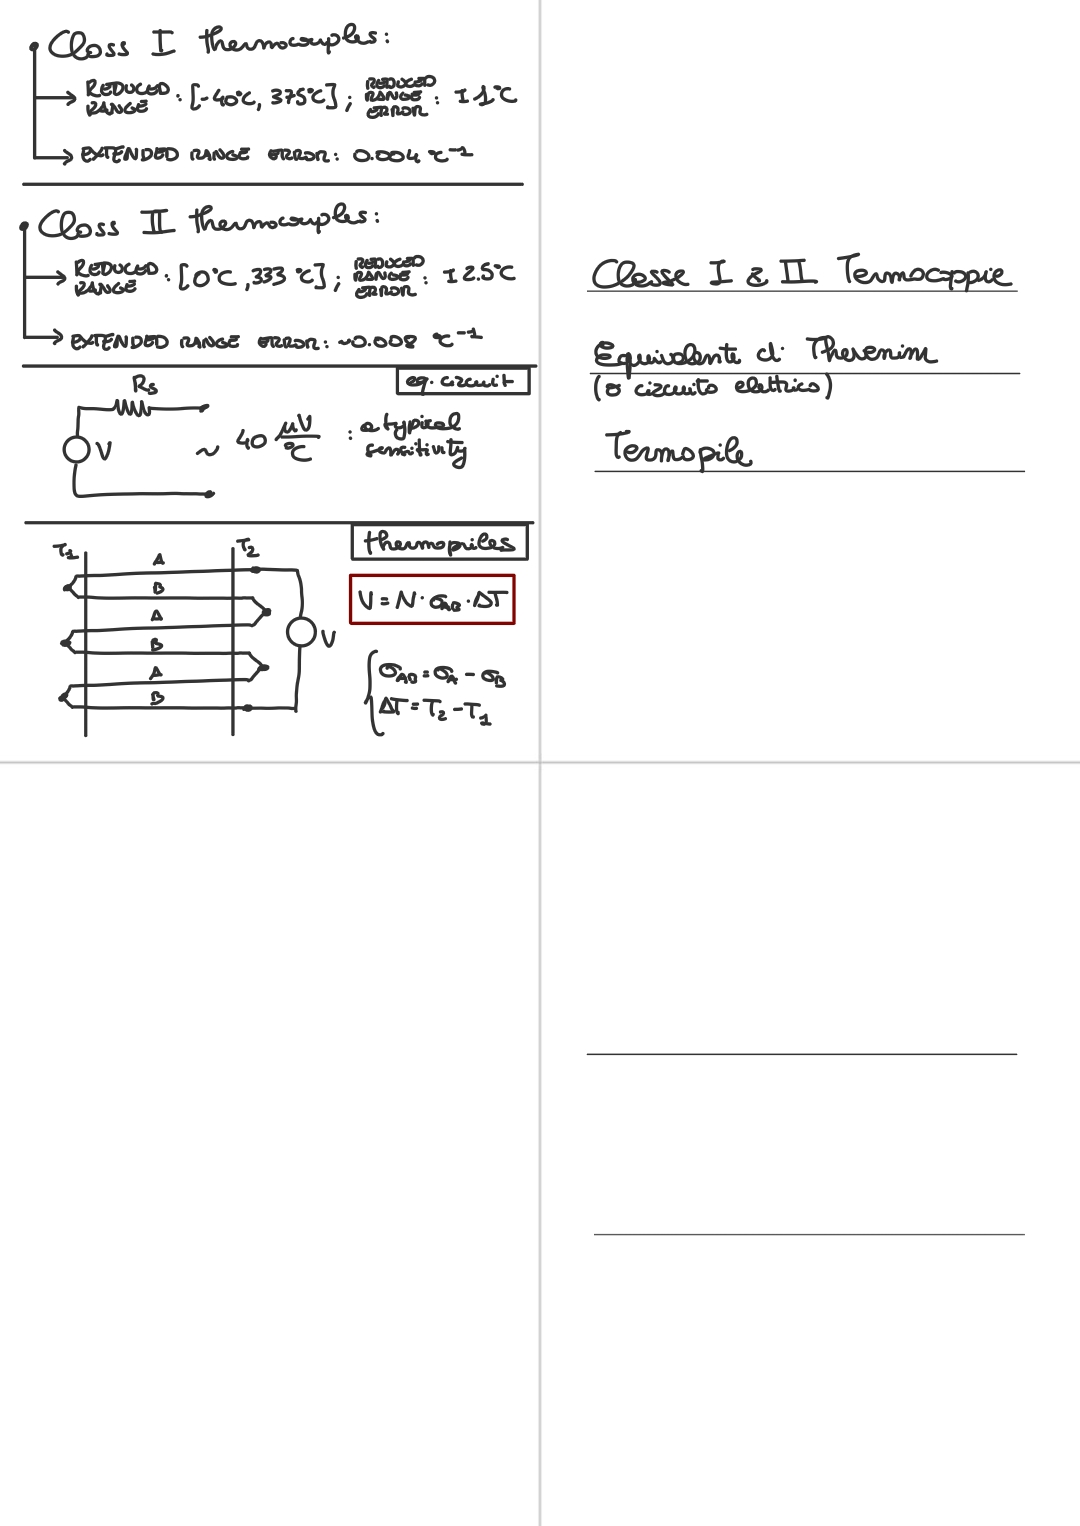 Class I thermocouples:
REDUCED RANGE : [-40°C, 375°C] ; REDUCED RANGE ERROR : ±1°C
EXTENDED RANGE ERROR: 0.004 °C⁻¹
Class II thermocouples:
REDUCED RANGE : [0°C, 333 °C] ; REDUCED RANGE ERROR : ±2.5°C
EXTENDED RANGE ERROR: ~0.008 °C⁻¹
eq. circuit
Rs
V
~ 40 μV/°C : a typical
sensitivity
thermopiles
T1 T2
A
B
A
B
A
B
V
V = N · σAB · ΔT
σAB = σA - σB
ΔT = T2 - T1
Classe I & II Termocoppie
Equivalente di Thevenin
(o circuito elettrico)
Termopile